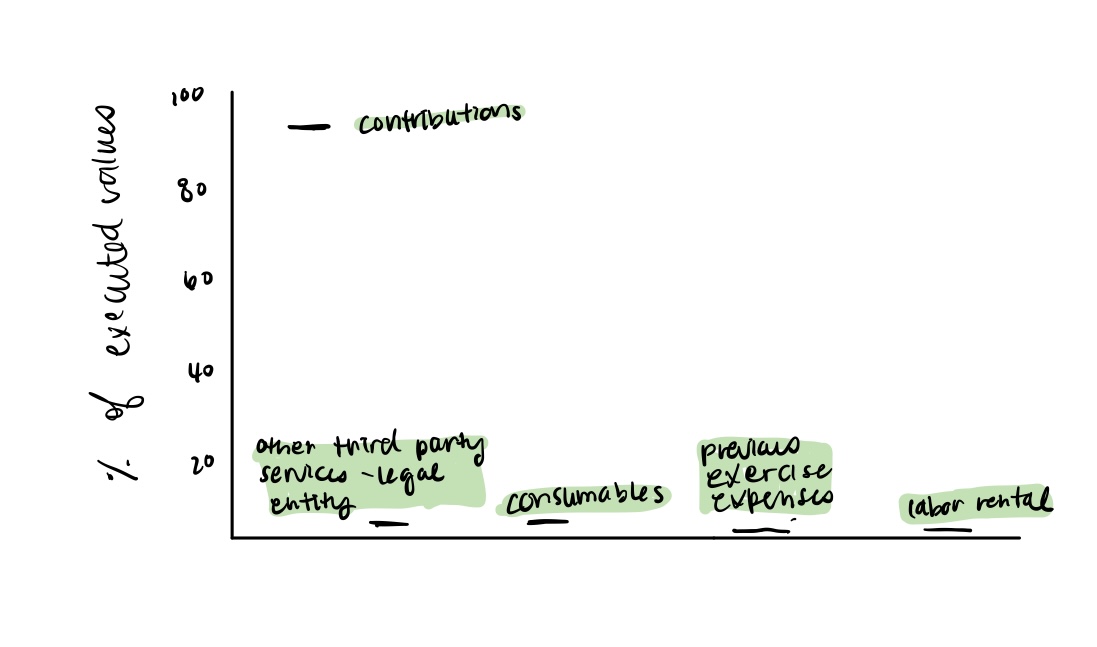 % of executed values
100
80
60
40
20
contributions
other third party
services - legal
entity
consumables
previous
exercise
expenses
labor rental